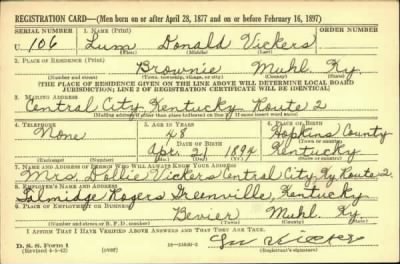 REGISTRATION CARD—(Men born on or after April 28, 1877 and on or before February 16, 1897)
SERIAL NUMBER 1. NAME (Print) ORDER NUMBER
U 106 Lum Donald Vickers
(First) (Middle) (Last)
2. PLACE OF RESIDENCE (Print)
Brownie Muhl. Ky
(Number and street) (Town, township, village, or city) (County) (State)
[THE PLACE OF RESIDENCE GIVEN ON THE LINE ABOVE WILL DETERMINE LOCAL BOARD
JURISDICTION; LINE 2 OF REGISTRATION CERTIFICATE WILL BE IDENTICAL]
3. MAILING ADDRESS
Central City, Kentucky Route 2
[Mailing address if other than place indicated on line 2. If same insert word same]
4. TELEPHONE 5. AGE IN YEARS 6. PLACE OF BIRTH
None 48 Hopkins County
DATE OF BIRTH (Town or county)
Apr. 21 1894 Kentucky
(Mo.) (Day) (Yr.) (State or country)
7. NAME AND ADDRESS OF PERSON WHO WILL ALWAYS KNOW YOUR ADDRESS
Mrs. Dollie Vickers Central City, Ky Route 2
8. EMPLOYER'S NAME AND ADDRESS
Talmidge Rogers Greenville, Kentucky
9. PLACE OF EMPLOYMENT OR BUSINESS
Bevier Muhl. Ky
(Number and street or R. F. D. number) (Town) (County) (State)
I AFFIRM THAT I HAVE VERIFIED ABOVE ANSWERS AND THAT THEY ARE TRUE.
D. S. S. Form 1
(Revised 4-1-42) (over) (Registrant's signature)